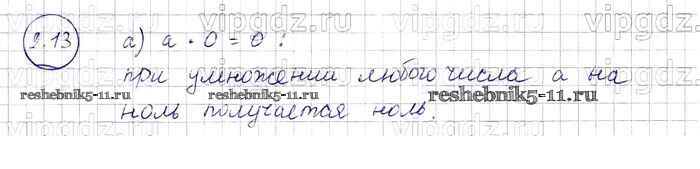 vipgdz.ru vipgdz.ru vipgdz.ru
2.13 а) а · 0 = 0 :
при умножении любого числа а на
reshebnik5-11.ru reshebnik5-11.ru
ноль получается ноль.
vipgdz.ru vipgdz.ru vipgdz.ru